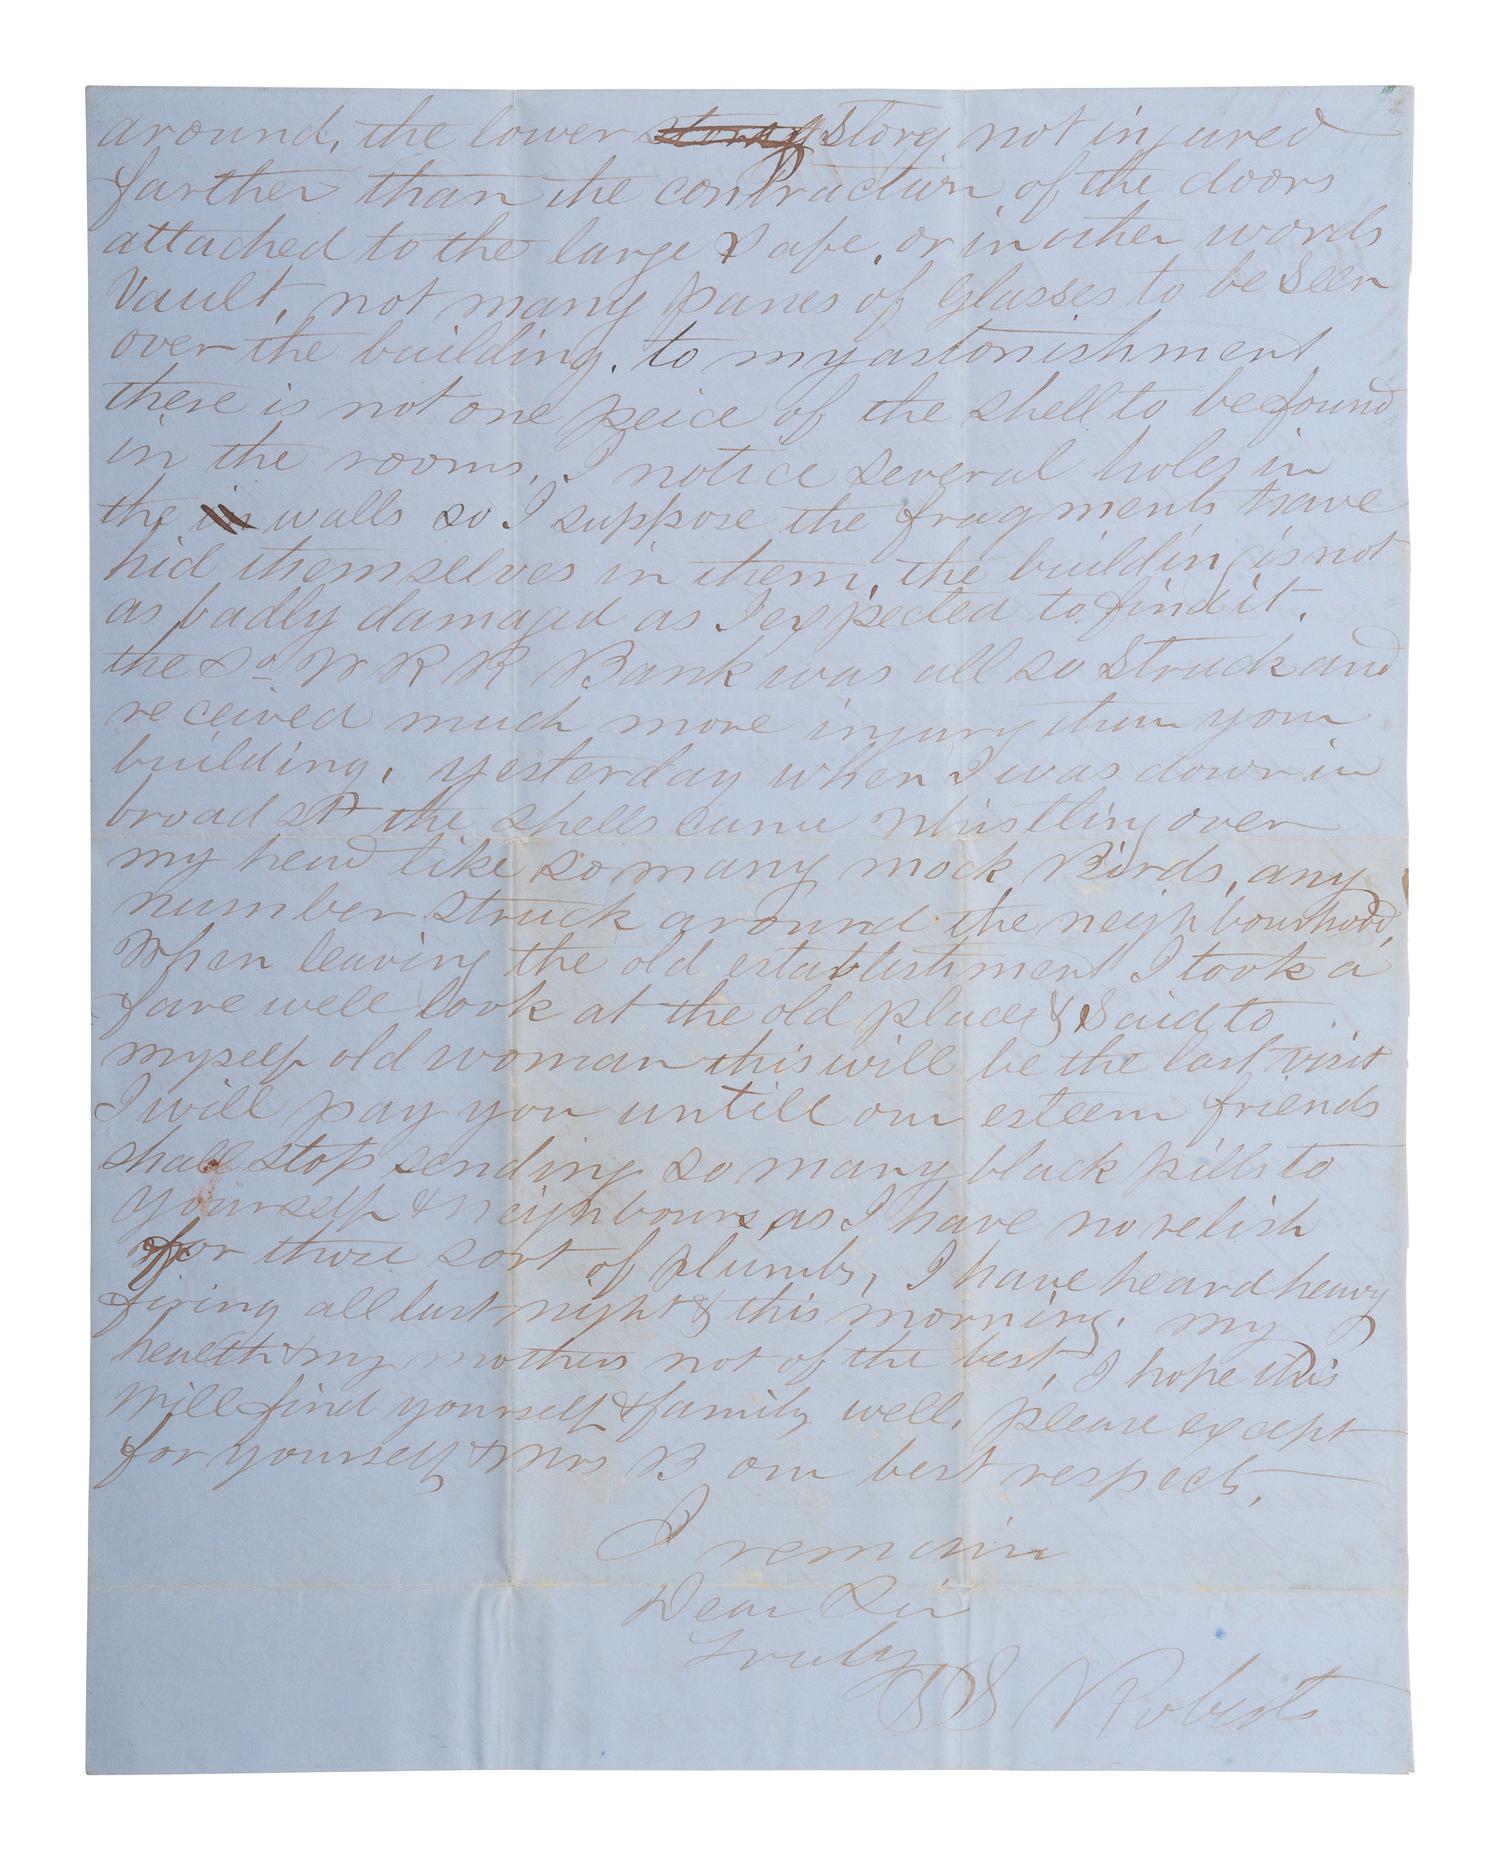 around, the lower storey Storey not injured
farther than the contraction of the doors
attached to the large Safe, or in other words
Vault, not many panes of Glasses to be Seen
over the building, to my astonishment
there is not one peice of the shell to be found
in the rooms, I notice several holes in
the in walls so I suppose the fragments have
hid themselves in them, the building is not
as badly damaged as I expected to find it.
the So W R R Bank was all so Struck and
received much more injury than your
building, yesterday when I was down in
broad St the shells came Whistling over
my head like so many mock Birds, any
number struck around the neighbourhood,
When leaving the old establishment I took a
fare well look at the old place & Said to
myself old woman this will be the last visit
I will pay you untill our esteem friends
shall stop sending so many black pills to
yourself & neighbours, as I have no relish
for those sort of plumbs, I have heard heavy
firing all last night & this morning. my
health & my mothers not of the best, I hope this
will find yourself & family well, please except
for yourself & Mrs B our best respects,
I remain
Dear Sir
Truly
S Roberts